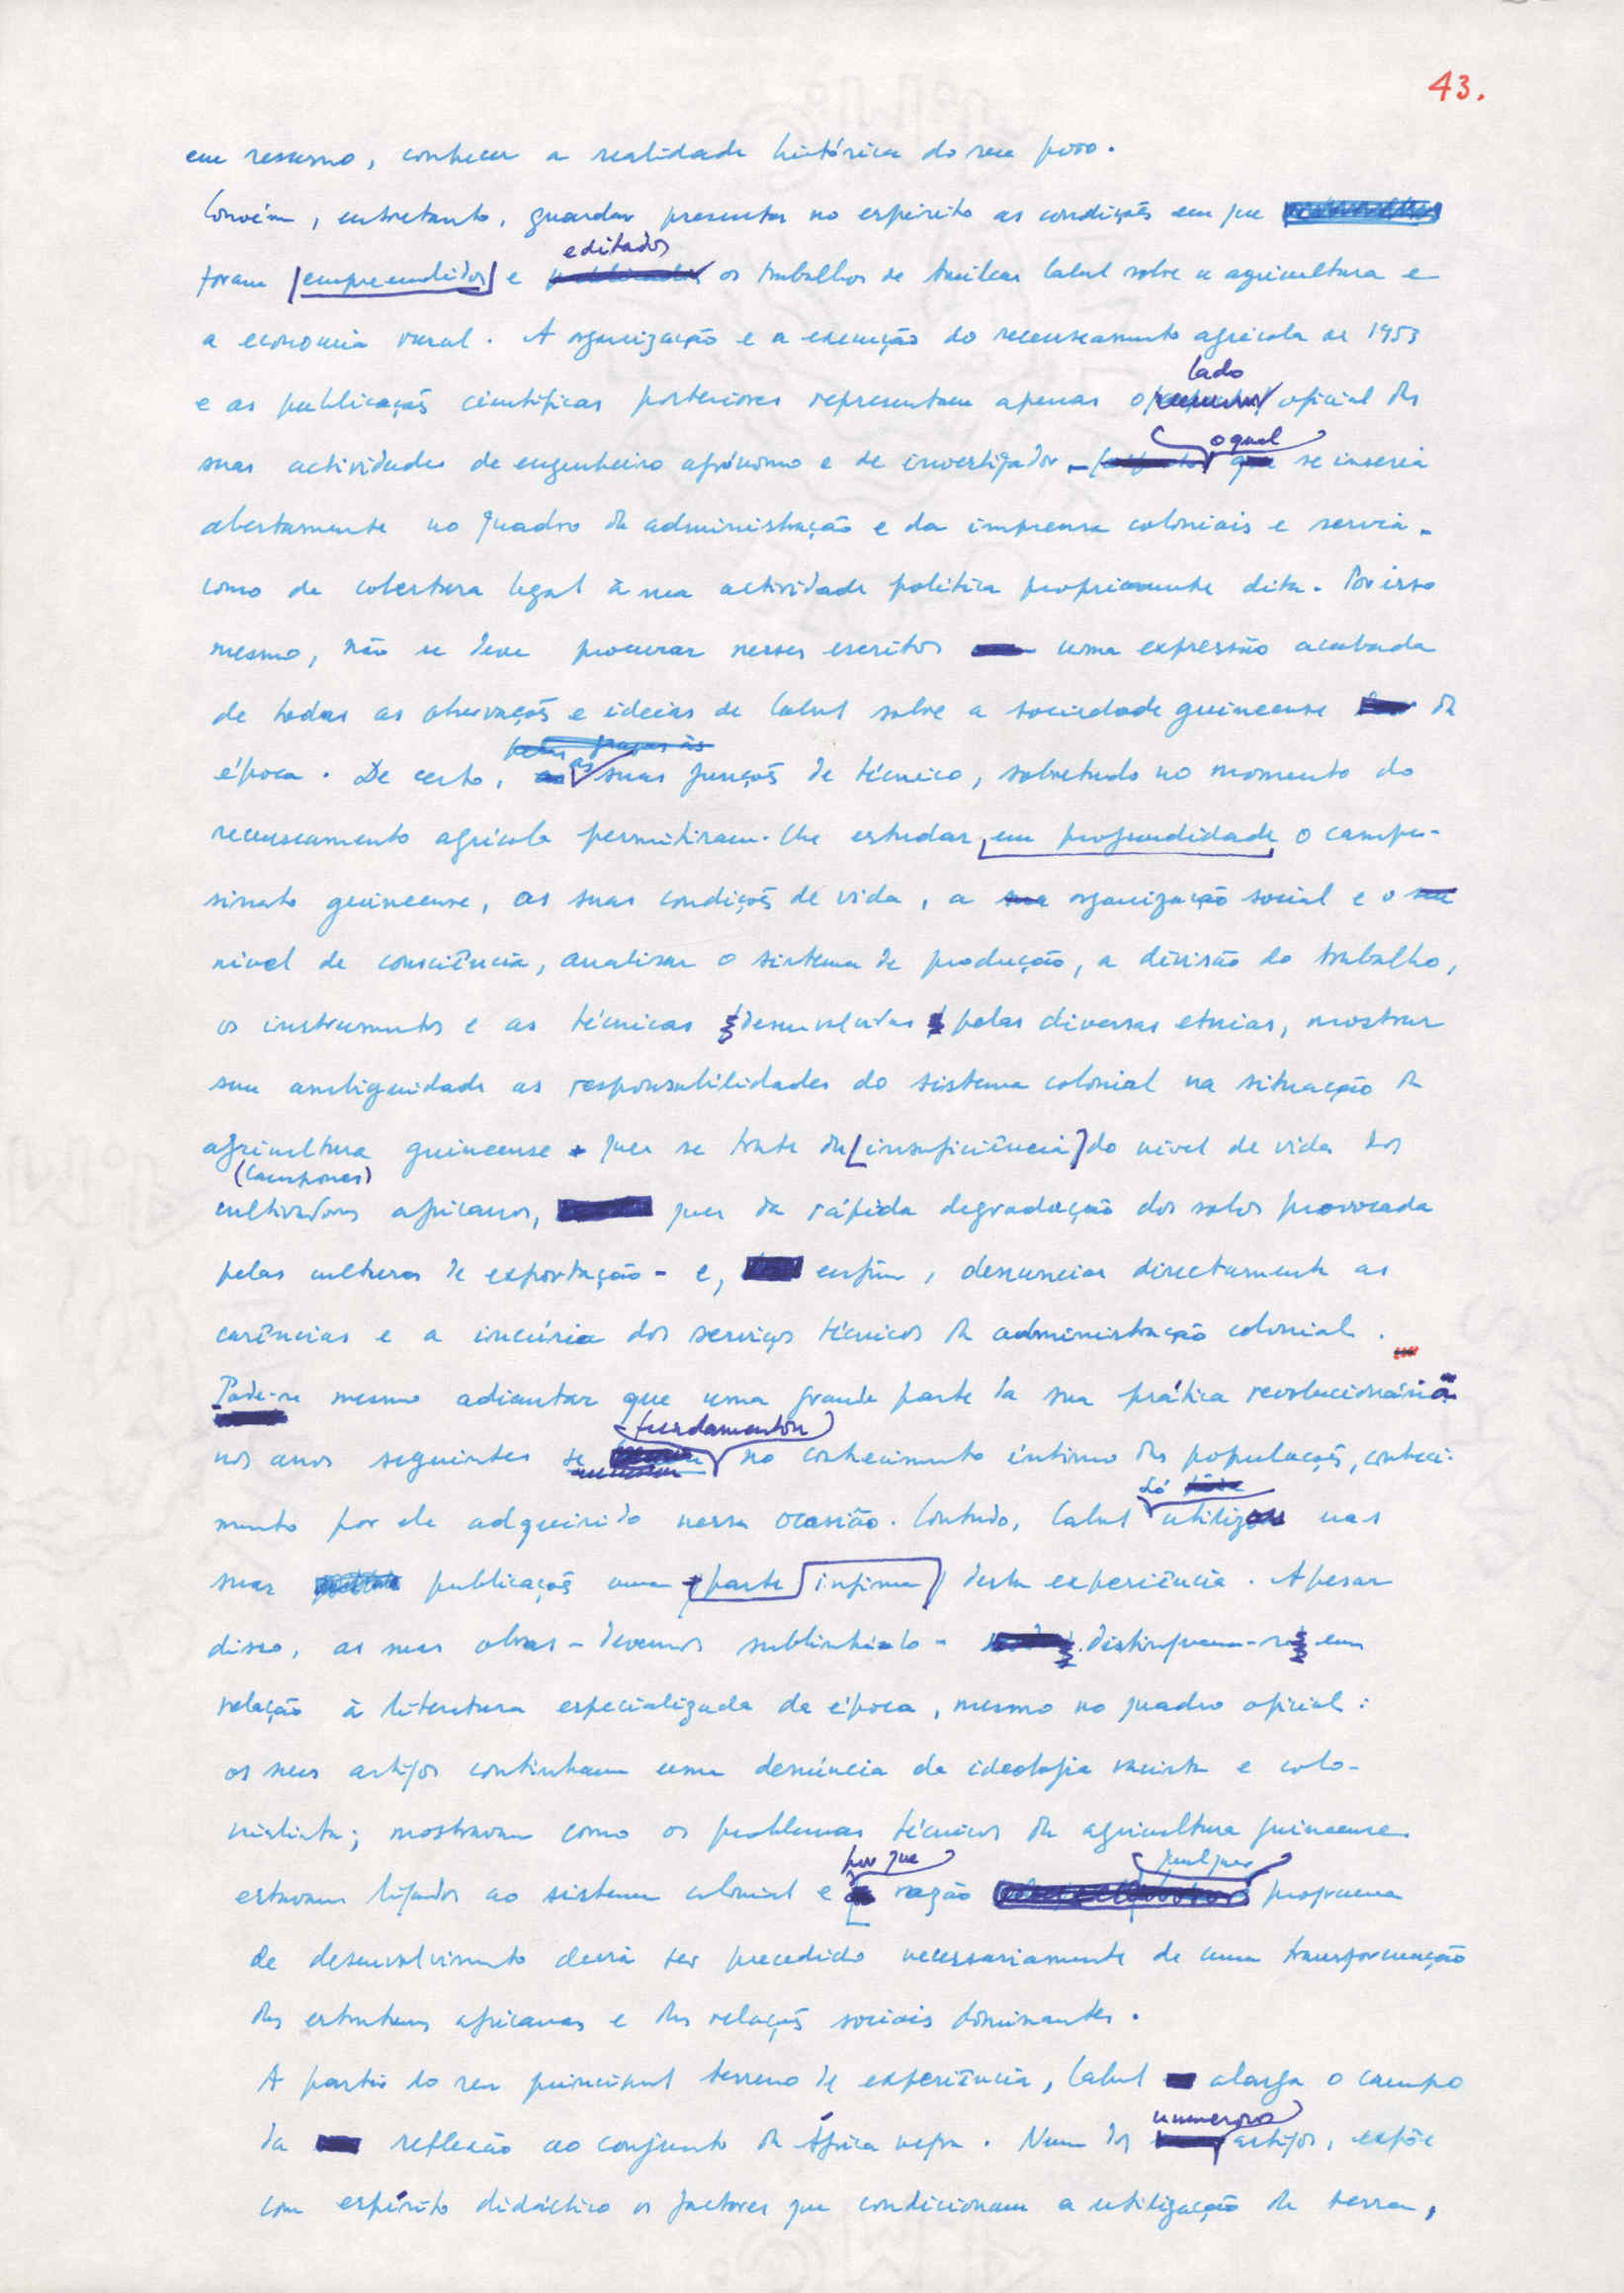 43.
em resumo, conhecer a realidade histórica do seu povo.
Convém, entretanto, guardar presentes no espírito as condições em que
editados
foram [empreendidos] e os trabalhos de Amílcar Cabral sobre a agricultura e
a economia rural. A organização e a execução do recenseamento agrícola de 1953
lado
e as publicações científicas posteriores representam apenas o oficial das
o qual
suas actividades de engenheiro agrónomo e de investigador - se inseria
abertamente no quadro da administração e da imprensa coloniais e servia-
como de cobertura legal à sua actividade política propriamente dita. Por isso
mesmo, não se deve procurar nesses escritos uma expressão acabada
de todas as observações e ideias de Cabral sobre a sociedade guineense da
pelas graças às
época. De certo, as suas funções de técnico, sobretudo no momento do
recenseamento agrícola permitiram-lhe estudar em profundidade o campe-
sinato guineense, as suas condições de vida, a sua organização social e o seu
nível de consciência, analisar o sistema de produção, a divisão do trabalho,
os instrumentos e as técnicas desenvolvidas pelas diversas etnias, mostrar
sem ambiguidade as responsabilidades do sistema colonial na situação da
agricultura guineense - quer se trate da [insuficiência] do nível de vida dos
(camponeses)
cultivadores africanos, quer da rápida degradação dos solos provocada
pelas culturas de exportação - e, enfim, denunciar directamente as
carências e a incúria dos serviços técnicos da administração colonial.
Pode-se mesmo adiantar que uma grande parte da sua prática revolucionária
fundamentou
nos anos seguintes se no conhecimento íntimo das populações, conheci-
só
mento por ele adquirido nessa ocasião. Contudo, Cabral utilizou nas
suas publicações uma parte [ínfima] desta experiência. Apesar
disso, as suas obras - devemos sublinhá-lo - distinguem-se em
relação à literatura especializada da época, mesmo no quadro oficial:
os seus artigos continham uma denúncia da ideologia racista e colo-
nialista; mostravam como os problemas técnicos da agricultura guineense
por que qualquer
estavam ligados ao sistema colonial e razão programa
de desenvolvimento devia ser precedido necessariamente de uma transformação
das estruturas africanas e das relações sociais dominantes.
A partir do seu principal terreno de experiência, Cabral alarga o campo
numerosos
da reflexão ao conjunto da África negra. Num dos artigos, expõe
com espírito didáctico os factores que condicionam a utilização da terra,